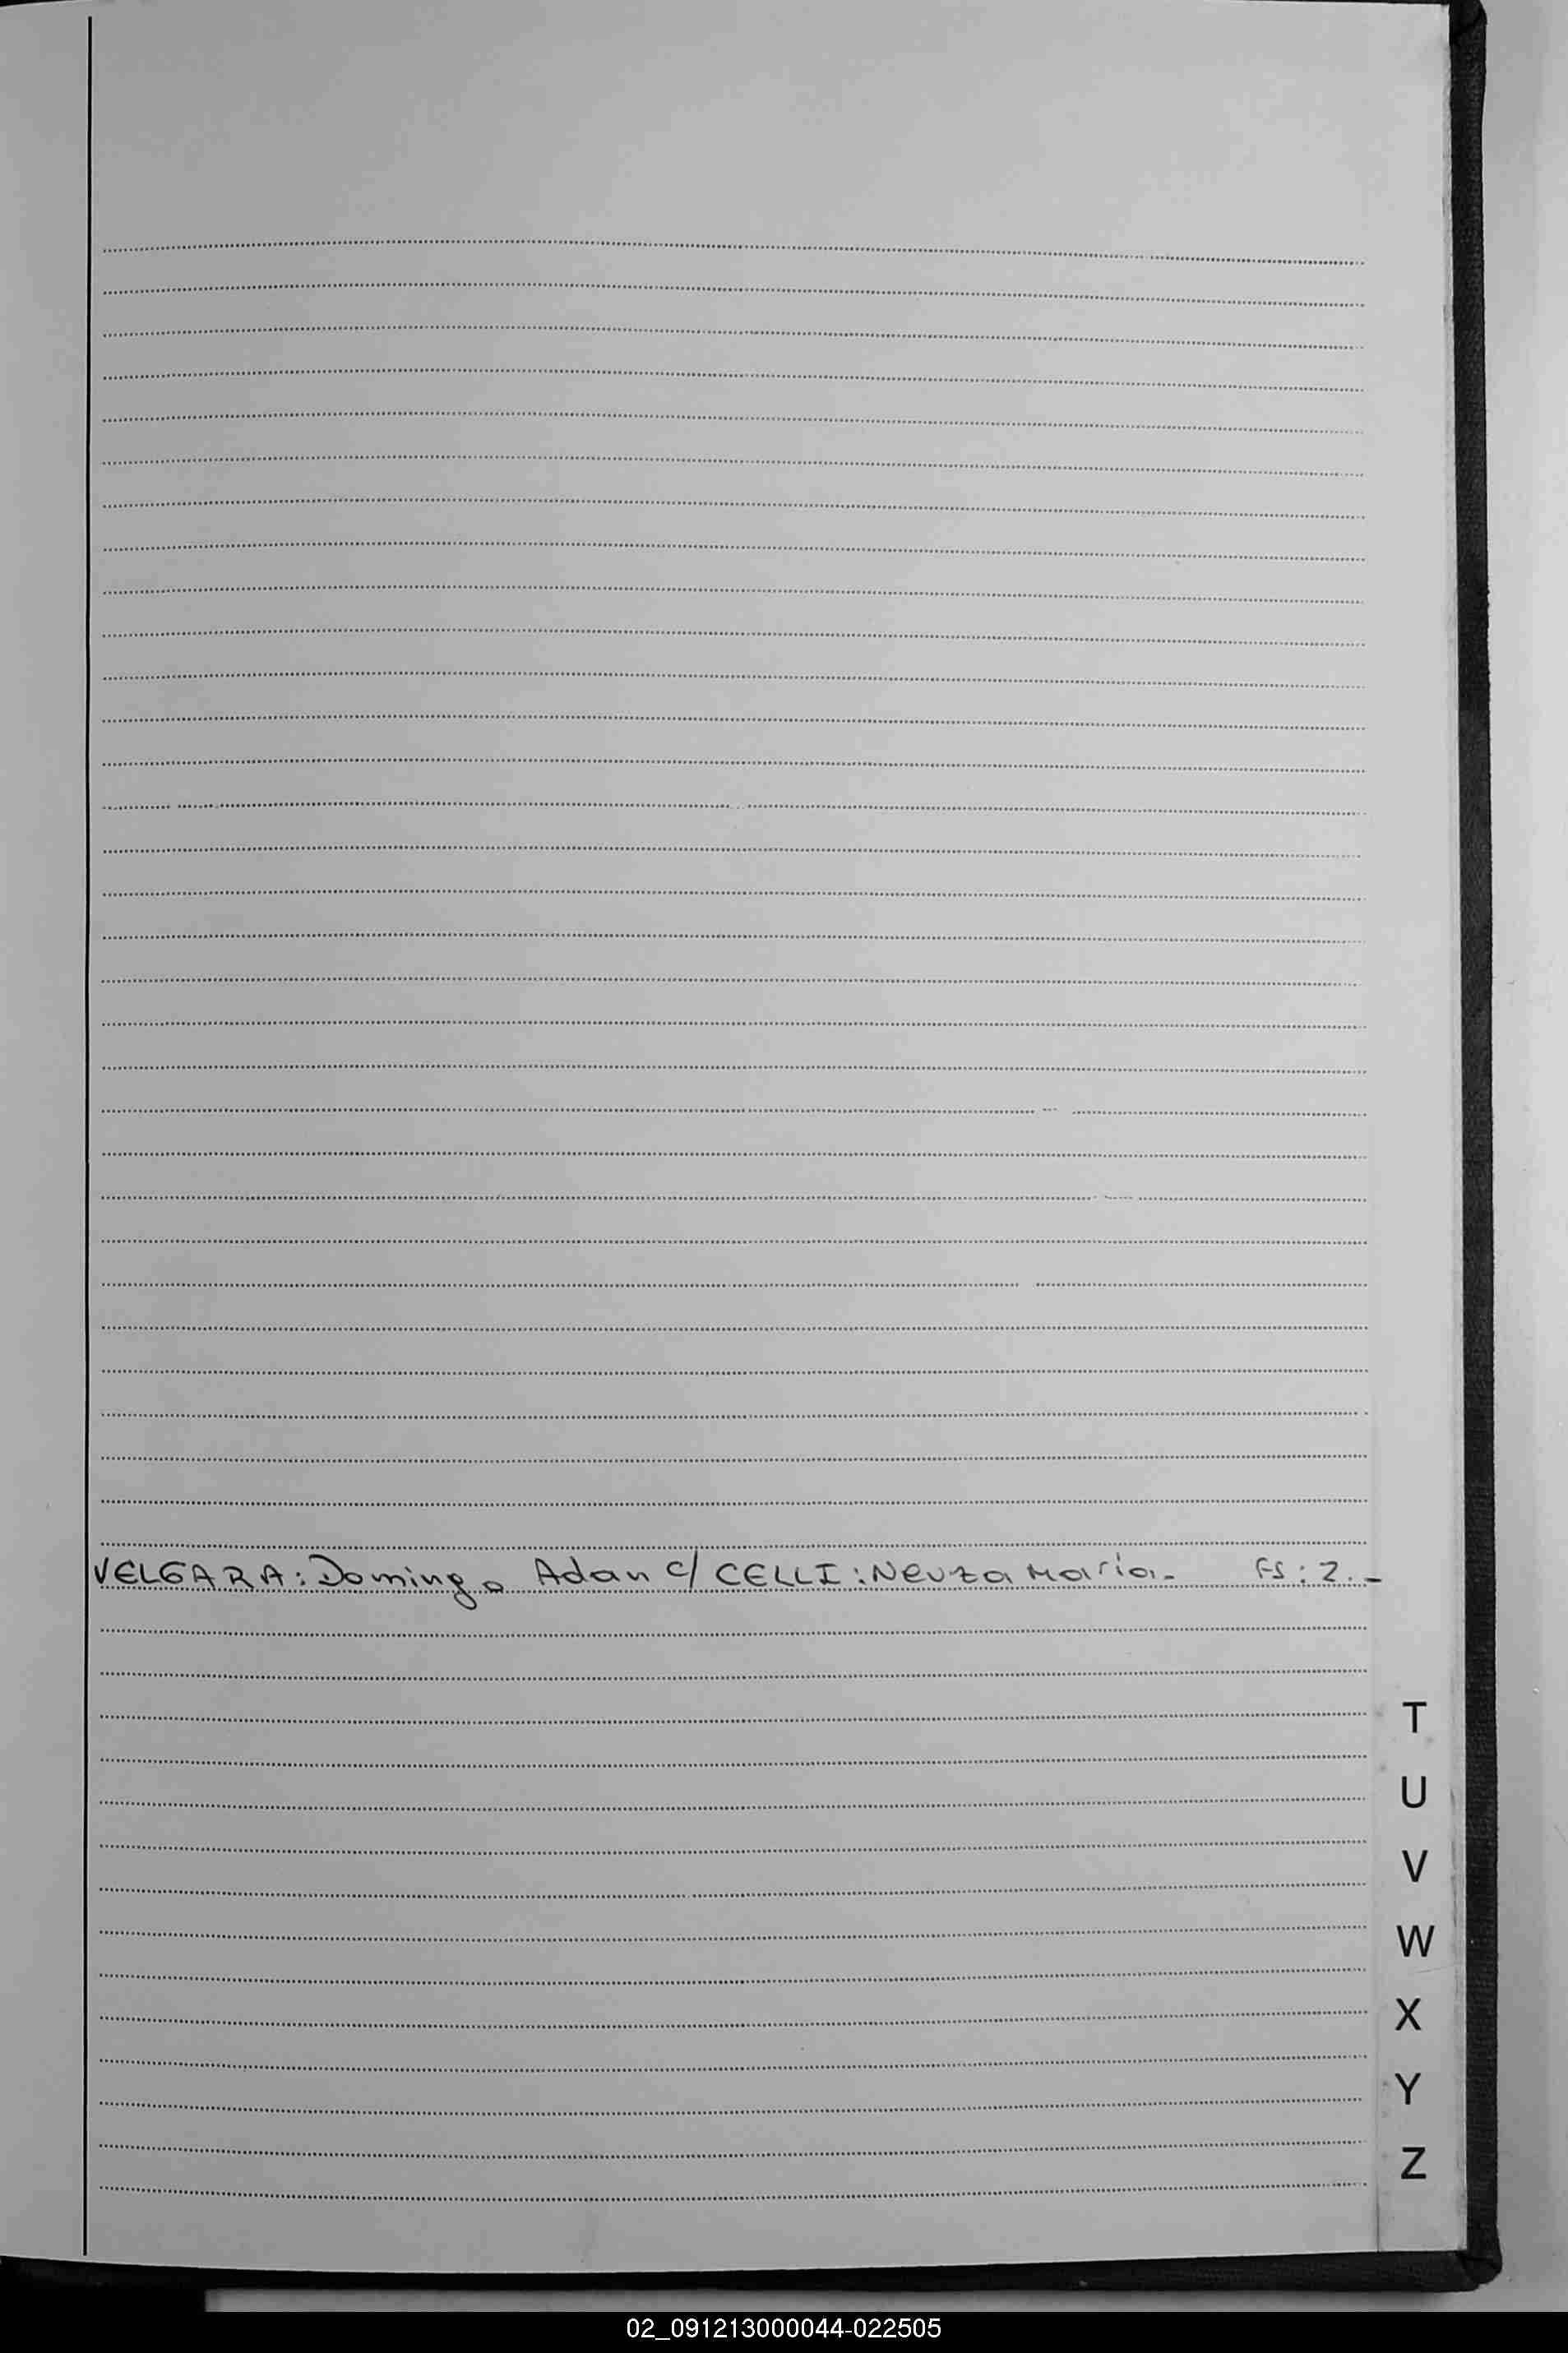 VELGARA: Domingo Adan c/ CELLI: Neuza Maria.- Fs: 2.-
T
U
V
W
X
Y
Z
02_091213000044-022505